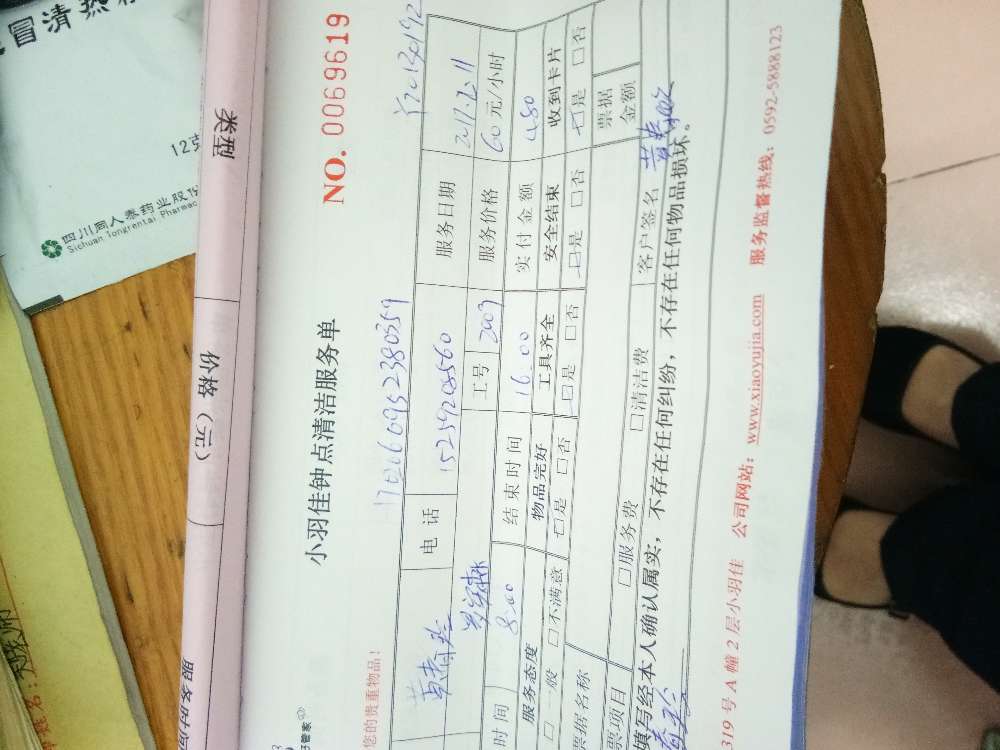 小羽佳钟点清洁服务单
NO. 0069619
您的贵重物品!
电话 15259208560 服务日期 2017.12.11
工号 2003 服务价格 60元/小时
时间 8:00 结束时间 16:00 实付金额 480
服务态度 物品完好 工具齐全 安全结束 收到卡片
□一般 □不满意 □是 □否 □是 □否 □是 □否 □是 □否
票据名称 票据金额
票项目 □服务费 □清洁费 客户签名
填写经本人确认属实,不存在任何纠纷,不存在任何物品损坏。
319号A幢2层小羽佳 公司网站:www.xiaoyujia.com 服务监督热线:0592-5888123
类型
价格(元)
服务时间
冒清热
12克
四川同人泰药业股份
Sichuan Tongrentai Pharmac